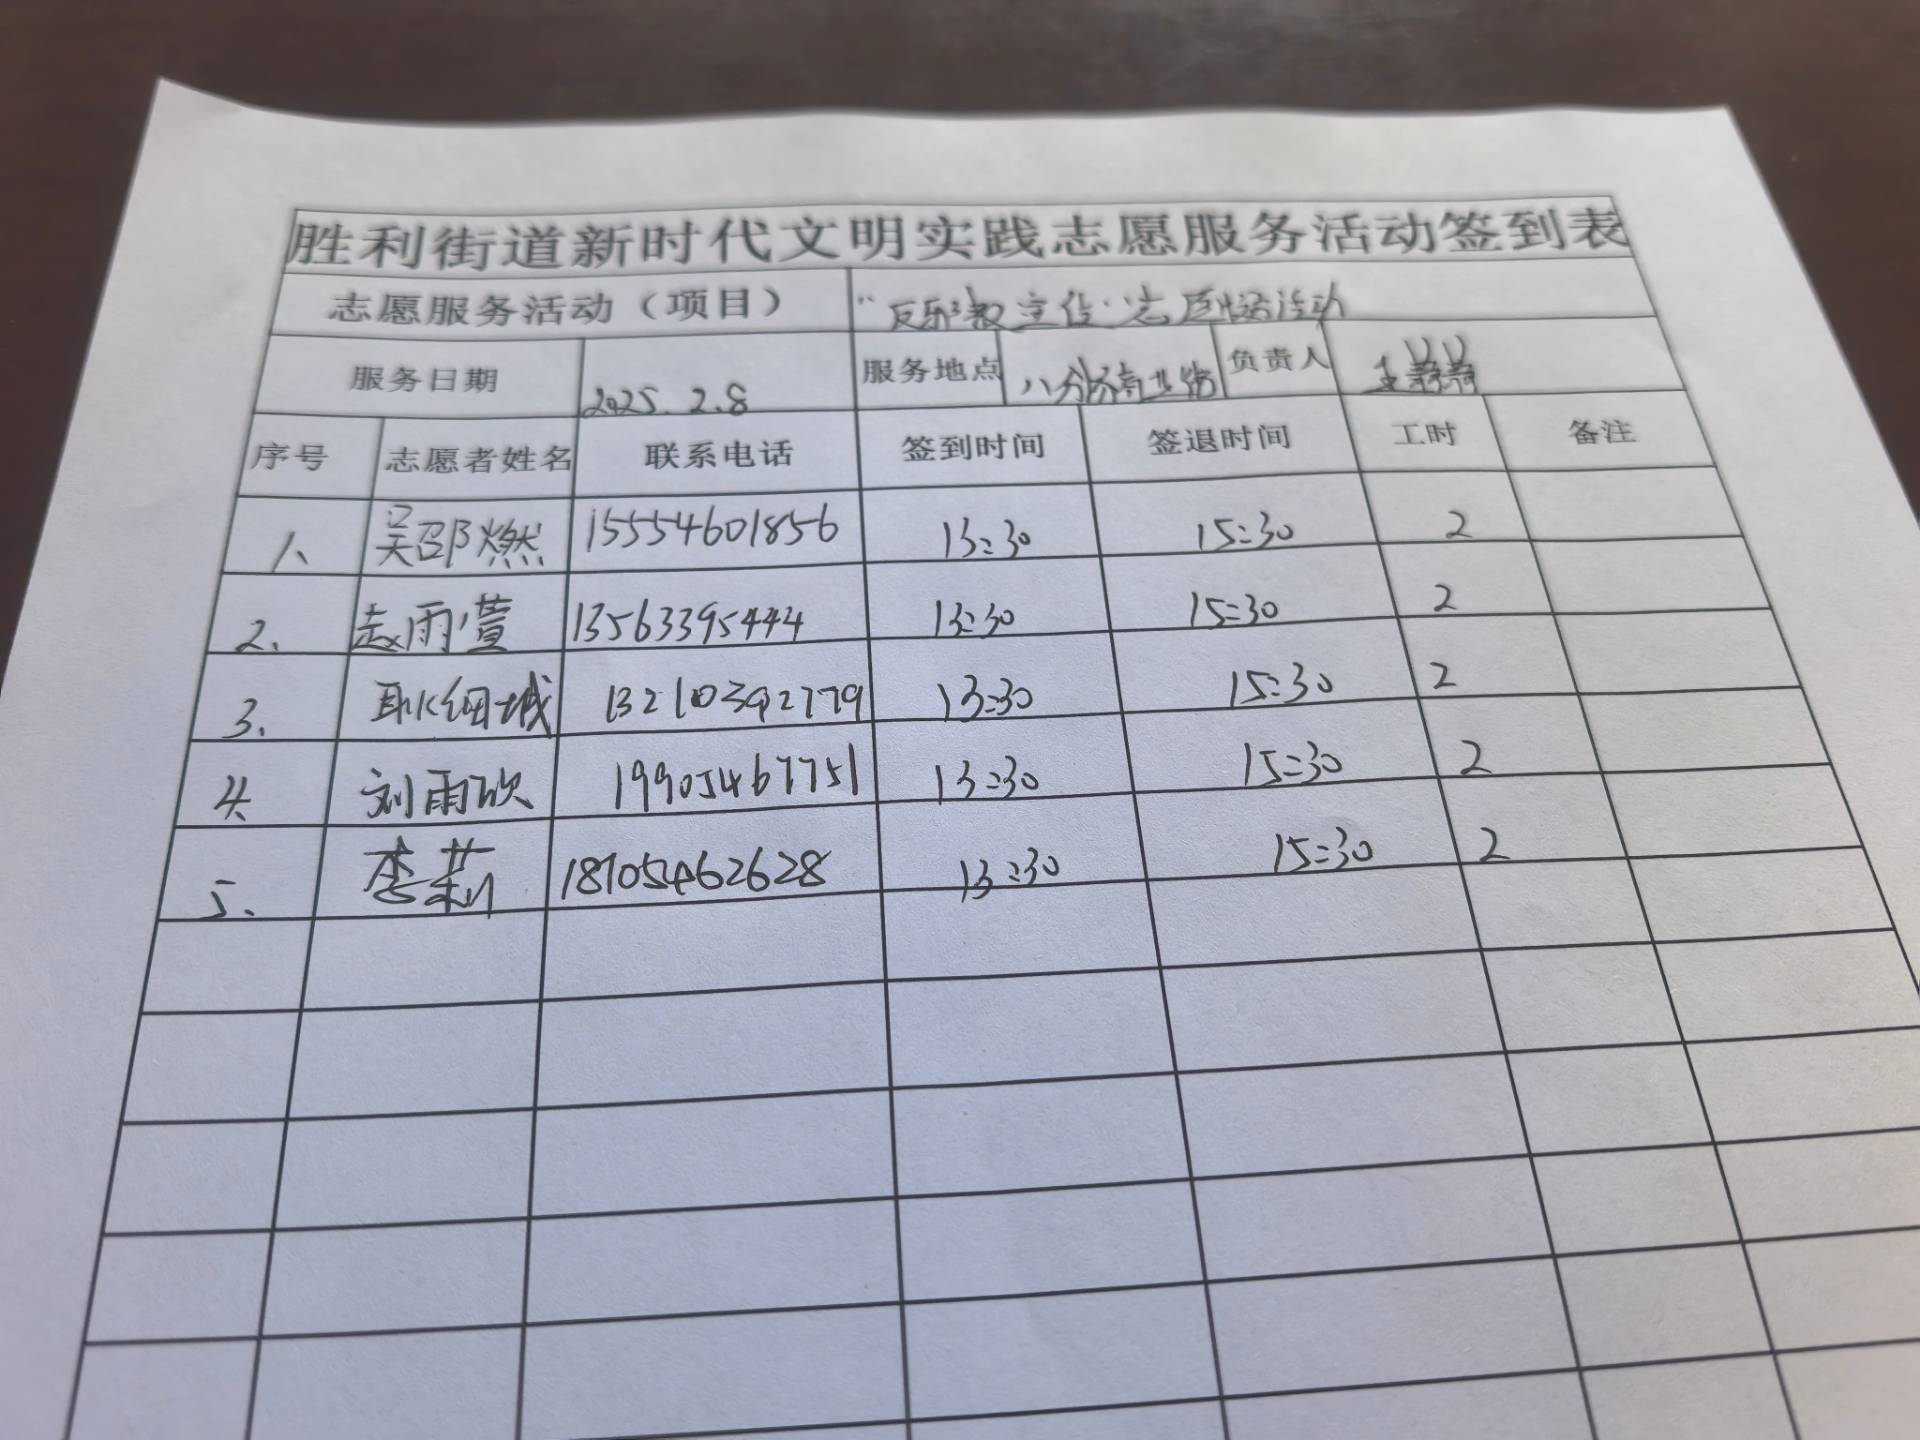 胜利街道新时代文明实践志愿服务活动签到表
志愿服务活动（项目） "反邪教宣传"志愿服务活动
服务日期 2025.2.8 服务地点 八分场商业街 负责人 王静静
序号 志愿者姓名 联系电话 签到时间 签退时间 工时 备注
1、 吴邵燃 15554601856 13:30 15:30 2
2、 赵雨萱 13563395444 13:30 15:30 2
3、 耿 城 13210392779 13:30 15:30 2
4、 刘雨欣 19905467751 13:30 15:30 2
5、 李莉 18105462628 13:30 15:30 2